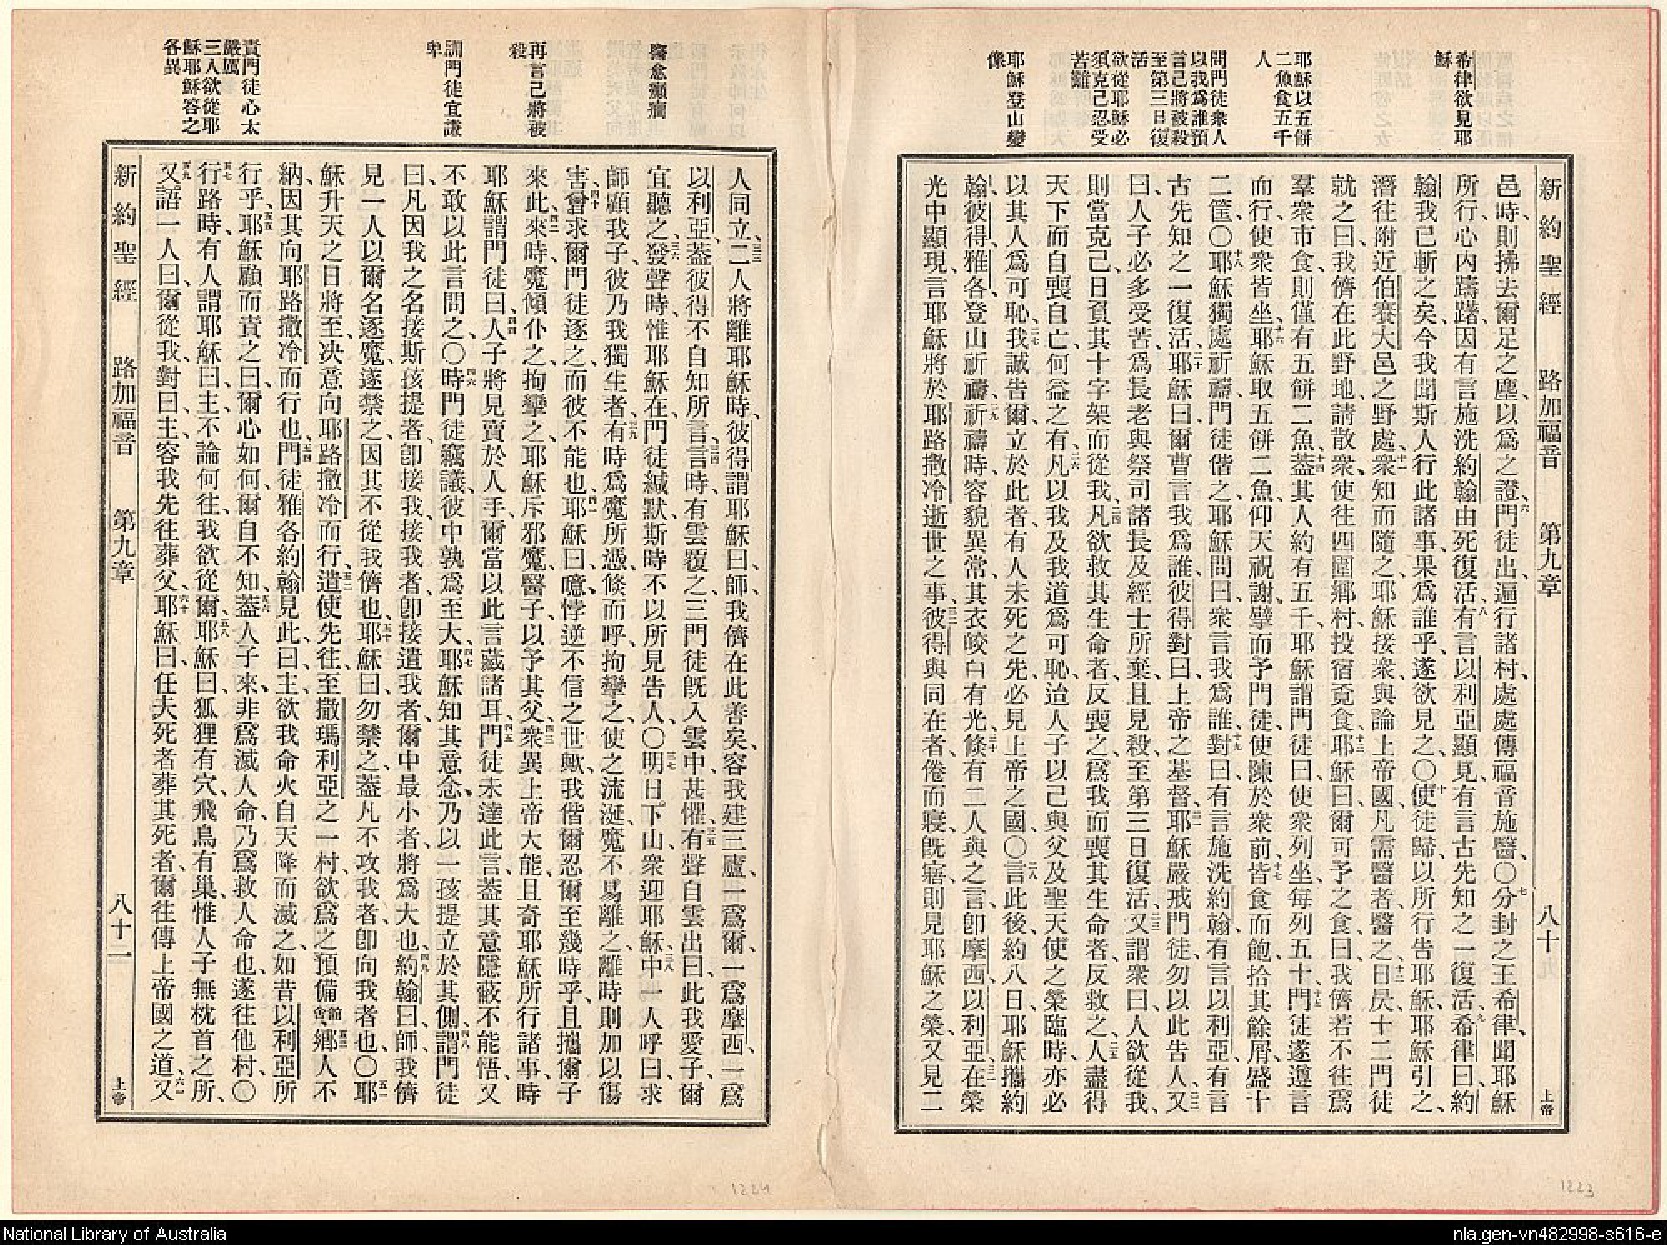 希律欲見耶
穌
耶穌以五餅
二魚食五千
人
問門徒衆人
以我爲誰預
言己將被殺
至第三日復
活
欲從耶穌必
須克己忍受
苦難
耶穌登山變
像
新約聖經 路加福音 第九章 八十九 上帝
邑時則拂去爾足之塵以爲之證、六門徒出、遍行諸村、處處傳福音施醫、〇七分封之王希律、聞耶穌
所行、心內躊躇、因有言施洗約翰由死復活、八有言以利亞顯見、有言古先知之一復活、九希律曰、約
翰我已斬之矣、今我聞斯人行此諸事、果爲誰乎、遂欲見之、〇十使徒歸、以所行告耶穌、耶穌引之、
潛往附近伯賽大邑之野處、十一衆知而隨之、耶穌接衆、與論上帝國、凡需醫者醫之、十二日昃、十二門徒
就之曰、我儕在此野地、請散衆、使往四圍鄉村、投宿覓食、十三耶穌曰、爾可予之食、曰、我儕若不往爲
羣衆市食、則僅有五餅二魚、十四蓋其人約有五千、耶穌謂門徒曰、使衆列坐、每列五十、十五門徒遂遵言
而行、使衆皆坐、十六耶穌取五餅二魚、仰天祝謝、擘而予門徒、使陳於衆前、十七皆食而飽、拾其餘屑、盛十
二筐、〇十八耶穌獨處祈禱、門徒偕之、耶穌問曰、衆言我爲誰、十九對曰、有言施洗約翰、有言以利亞、有言
古先知之一復活、二十耶穌曰、爾曹言我爲誰、彼得對曰、上帝之基督、二一耶穌嚴戒門徒、勿以此告人、二二又
曰、人子必多受苦、爲長老與祭司諸長及經士所棄、且見殺、至第三日復活、二三又謂衆曰、人欲從我、
則當克己、日負其十字架而從我、二四凡欲救其生命者、反喪之、爲我而喪其生命者、反救之、二五人盡得
天下、而自喪自亡、何益之有、二六凡以我及我道爲可恥、迨人子以己與父及聖天使之榮臨時、亦必
以其人爲可恥、二七我誠告爾、立於此者、有人未死之先、必見上帝之國、〇二八言此後約八日、耶穌攜約
翰、彼得、雅各、登山祈禱、二九祈禱時、容貌異常、其衣皎白有光、三十倏有二人與之言、卽摩西、以利亞、三一在榮
光中顯現、言耶穌將於耶路撒冷逝世之事、三二彼得與同在者、倦而寢、旣寤、則見耶穌之榮、又見二
1223
醫愈癲癎
再言己將被
殺
謂門徒宜謙
卑
責門徒心太
嚴厲
三人欲從耶
穌耶穌答之
各異
人同立、三三二人將離耶穌時、彼得謂耶穌曰、師、我儕在此善矣、容我建三廬、一爲爾、一爲摩西、一爲
以利亞、蓋彼得不自知所言、三四言時、有雲覆之、三門徒旣入雲中、甚懼、三五有聲自雲出曰、此我愛子、爾
宜聽之、三六發聲時、惟耶穌在、門徒緘默、斯時不以所見告人、〇三七明日下山、衆迎耶穌、三八中一人呼曰、求
師顧我子、彼乃我獨生者、三九有時爲魔所憑、倏而呼、拘攣之、使之流涎、魔不易離之、離時則加以傷
害、四十曾求爾門徒逐之、而彼不能也、四一耶穌曰、噫、悖逆不信之世歟、我偕爾忍爾至幾時乎、且攜爾子
來此、四二來時、魔傾仆之、拘攣之、耶穌斥邪魔、醫子以予其父、四三衆異上帝大能、且奇耶穌所行諸事、時
耶穌謂門徒曰、四四人子將見賣於人手、爾當以此言藏諸耳、四五門徒未達此言、蓋其意隱蔽、不能悟、又
不敢以此言問之、〇四六時門徒竊議、彼中孰爲至大、四七耶穌知其意念、乃以一孩提立於其側、四八謂門徒
曰、凡因我之名接斯孩提者、卽接我、接我者、卽接遣我者、爾中最小者、將爲大也、四九約翰曰、師、我儕
見一人以爾名逐魔、遂禁之、因其不從我儕也、五十耶穌曰、勿禁之、蓋凡不攻我者、卽向我者也、〇五一耶
穌升天之日將至、決意向耶路撒冷而行、五二遣使先往、至撒瑪利亞之一村、欲爲之預備館舍、五三鄉人不
納、因其向耶路撒冷而行也、五四門徒雅各約翰見此、曰、主欲我命火自天降而滅之、如昔以利亞所
行乎、五五耶穌顧而責之曰、爾心如何、爾自不知、五六蓋人子來、非爲滅人命、乃爲救人命也、遂往他村、〇
五七行路時、有人謂耶穌曰、主、不論何往、我欲從爾、五八耶穌曰、狐狸有穴、飛鳥有巢、惟人子無枕首之所、
五九又語一人曰、爾從我、對曰、主、容我先往葬父、六十耶穌曰、任夫死者葬其死者、爾往傳上帝國之道、六一又
新約聖經 路加福音 第九章 八十二 上帝
1224
National Library of Australia
nla.gen-vn482998-s616-e